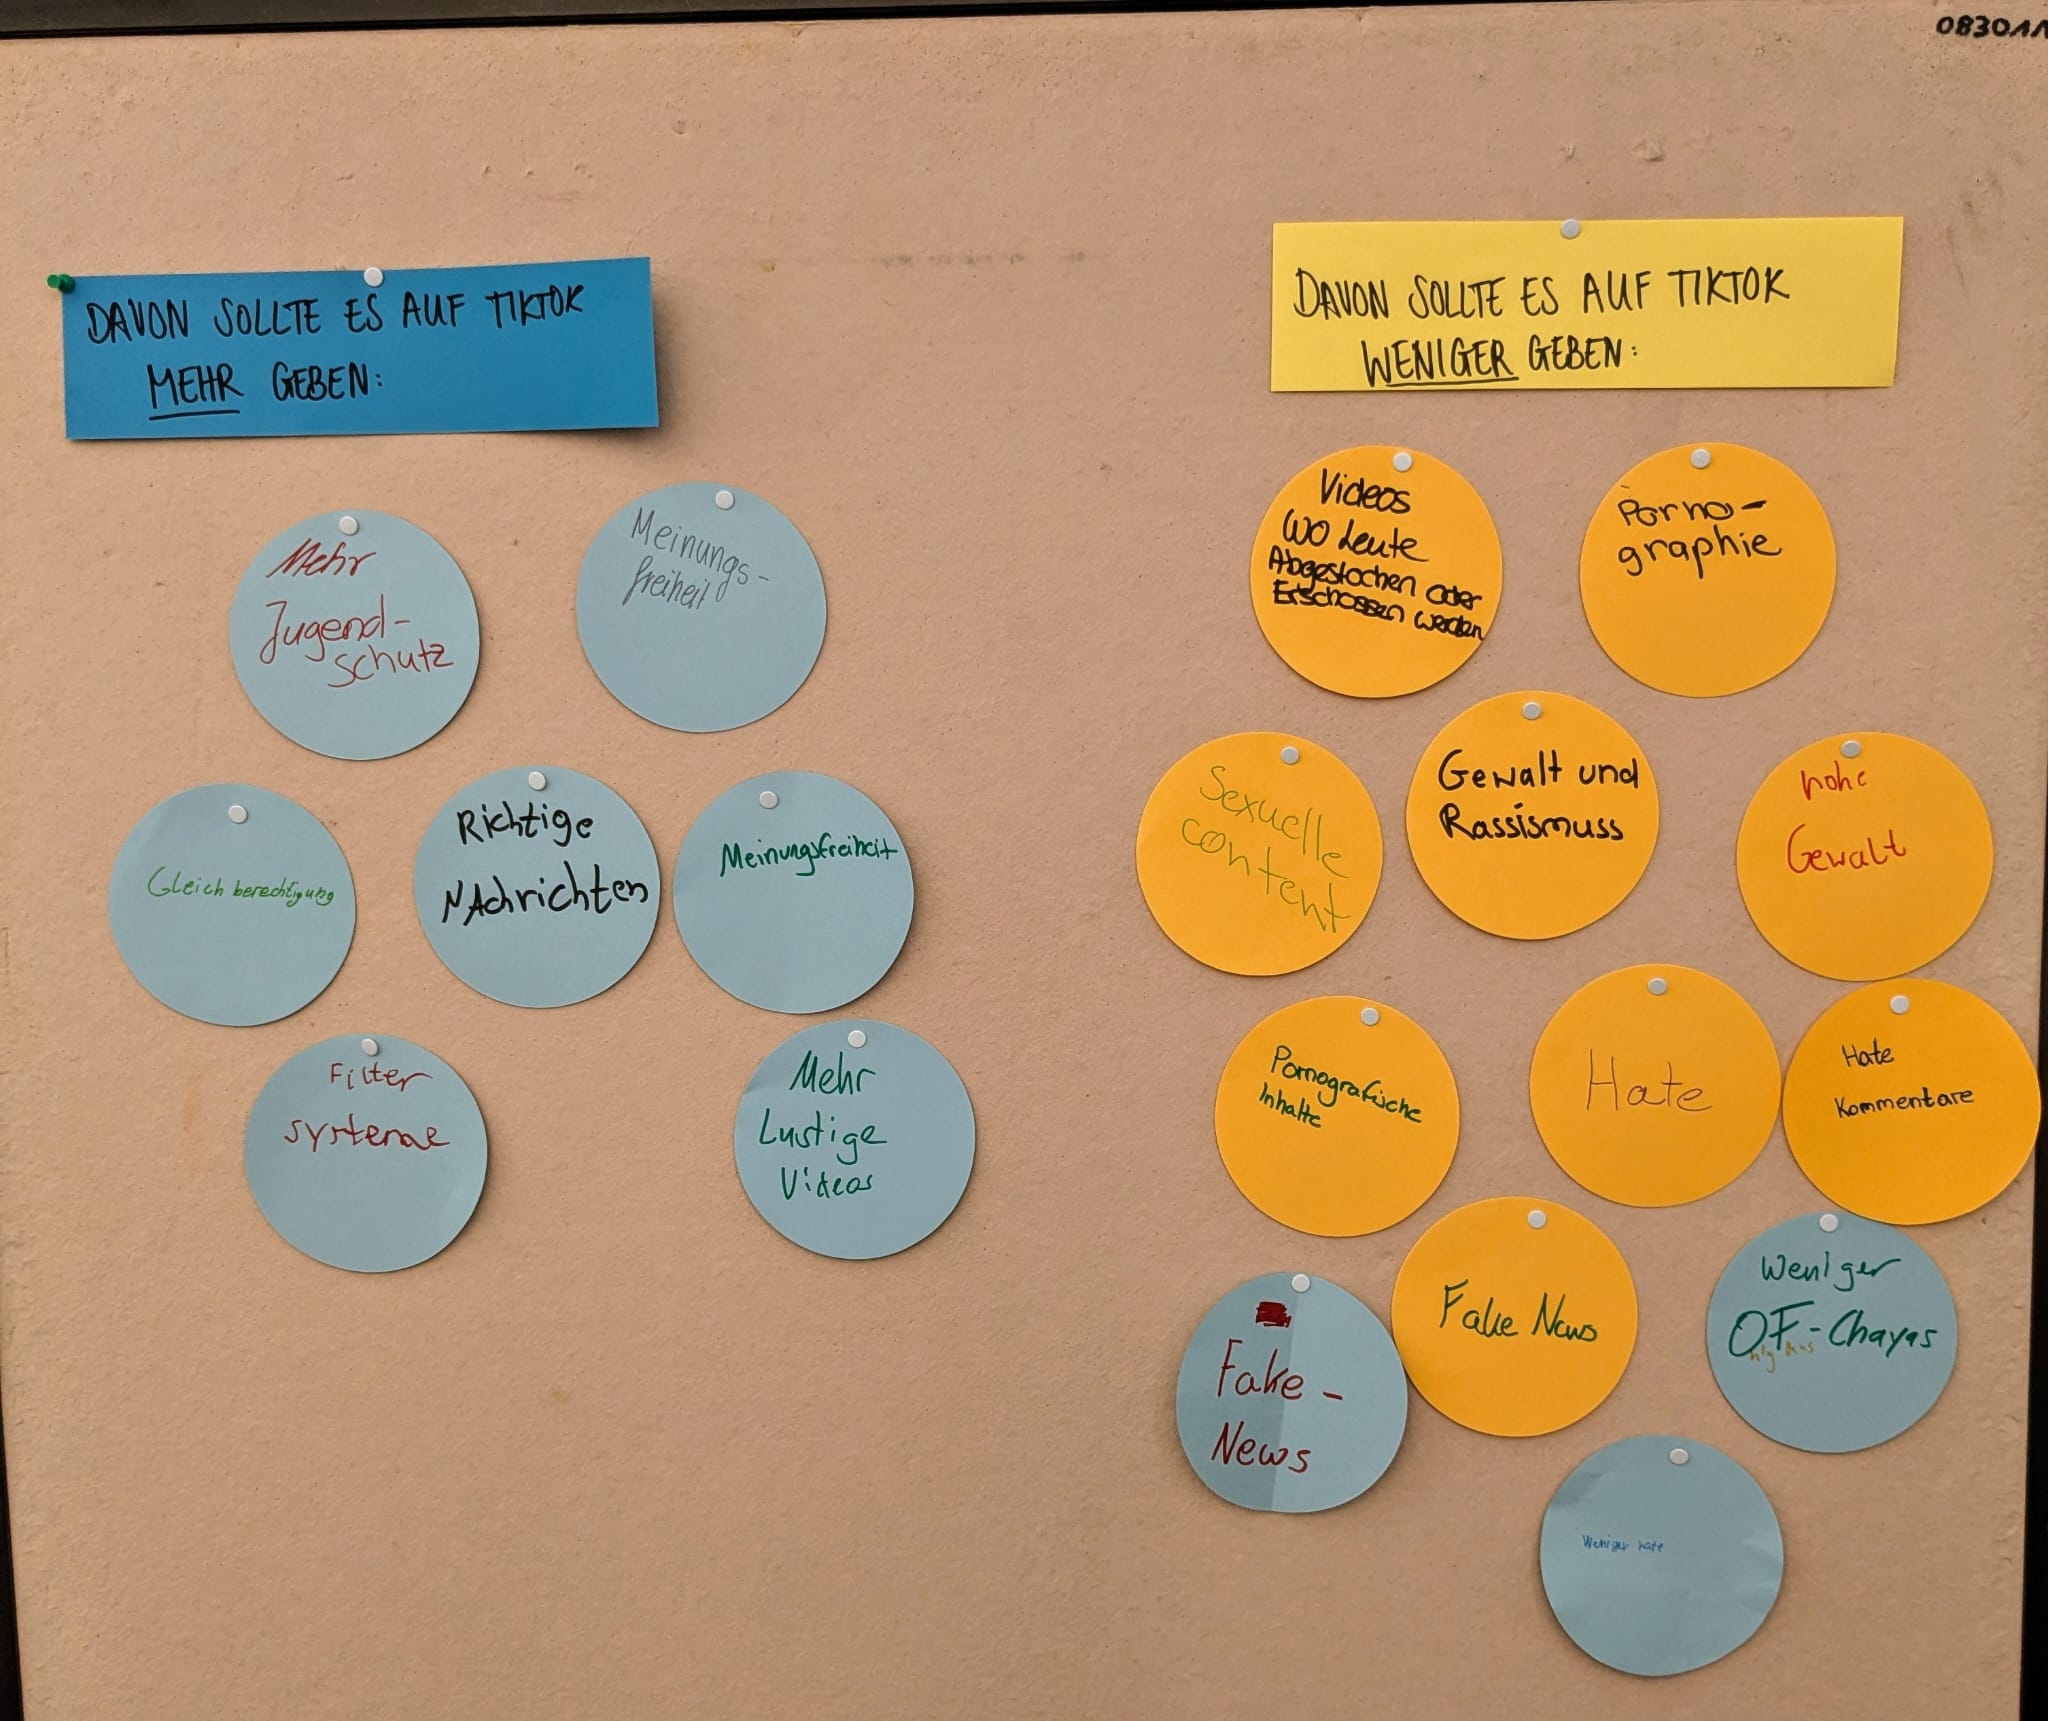 DAVON SOLLTE ES AUF TIKTOK
MEHR GEBEN:
Mehr
Jugend-
schutz
Meinungs-
freiheit
Gleich berechtigung
Richtige
NAchrichten
Meinungsfreiheit
Filter
systeme
Mehr
Lustige
Videos
DAVON SOLLTE ES AUF TIKTOK
WENIGER GEBEN:
Videos
WO Leute
Abgestochen oder
Erschossen werden
Porno-
graphie
Sexuelle
content
Gewalt und
Rassismuss
hohe
Gewalt
Pornografische
Inhalte
Hate
Hate
Kommentare
Fake-
News
Fake News
Weniger
OF-Chayas
Weniger hate